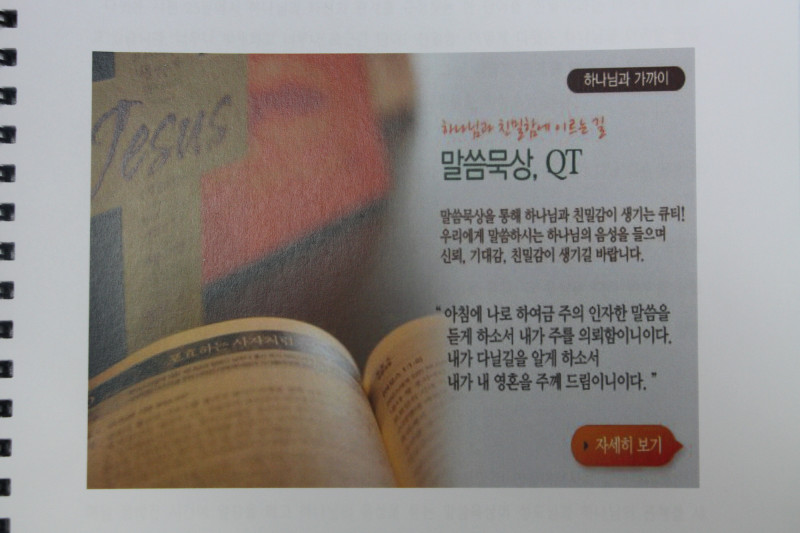 하나님과 가까이
Jesus
하나님과 친밀함에 이르는 길
말씀묵상, QT
말씀묵상을 통해 하나님과 친밀감이 생기는 큐티!
우리에게 말씀하시는 하나님의 음성을 들으며
신뢰, 기대감, 친밀감이 생기길 바랍니다.
“ 아침에 나로 하여금 주의 인자한 말씀을
듣게 하소서 내가 주를 의뢰함이니이다.
내가 다닐길을 알게 하소서
내가 내 영혼을 주께 드림이니이다. ”
포효하는 사자처럼
자세히 보기